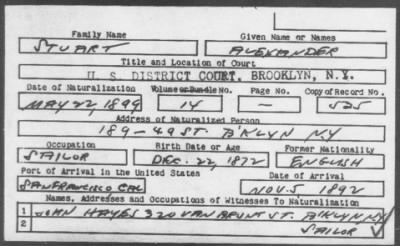 Family Name Given Name or Names
STUART ALEXANDER
Title and Location of Court
U. S. DISTRICT COURT, BROOKLYN, N.Y.
Date of Naturalization Volume or Bundle No. Page No. Copy of Record No.
MAY 22, 1899 14 — 525
Address of Naturalized Person
189-49 ST. B'KLYN NY
Occupation Birth Date or Age Former Nationality
SAILOR DEC. 22, 1872 ENGLISH
Port of Arrival in the United States Date of Arrival
SANFRANCISCO CAL NOV. 5 1892
Names, Addresses and Occupations of Witnesses To Naturalization
1 JOHN HAYES 320 VAN BRUNT ST. B'KLYN NY
2 SAILOR